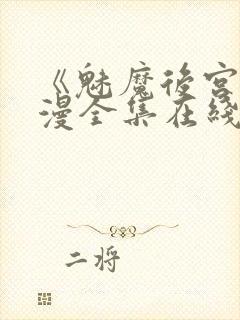 《魅魔後宮
漫全集在綫
二将